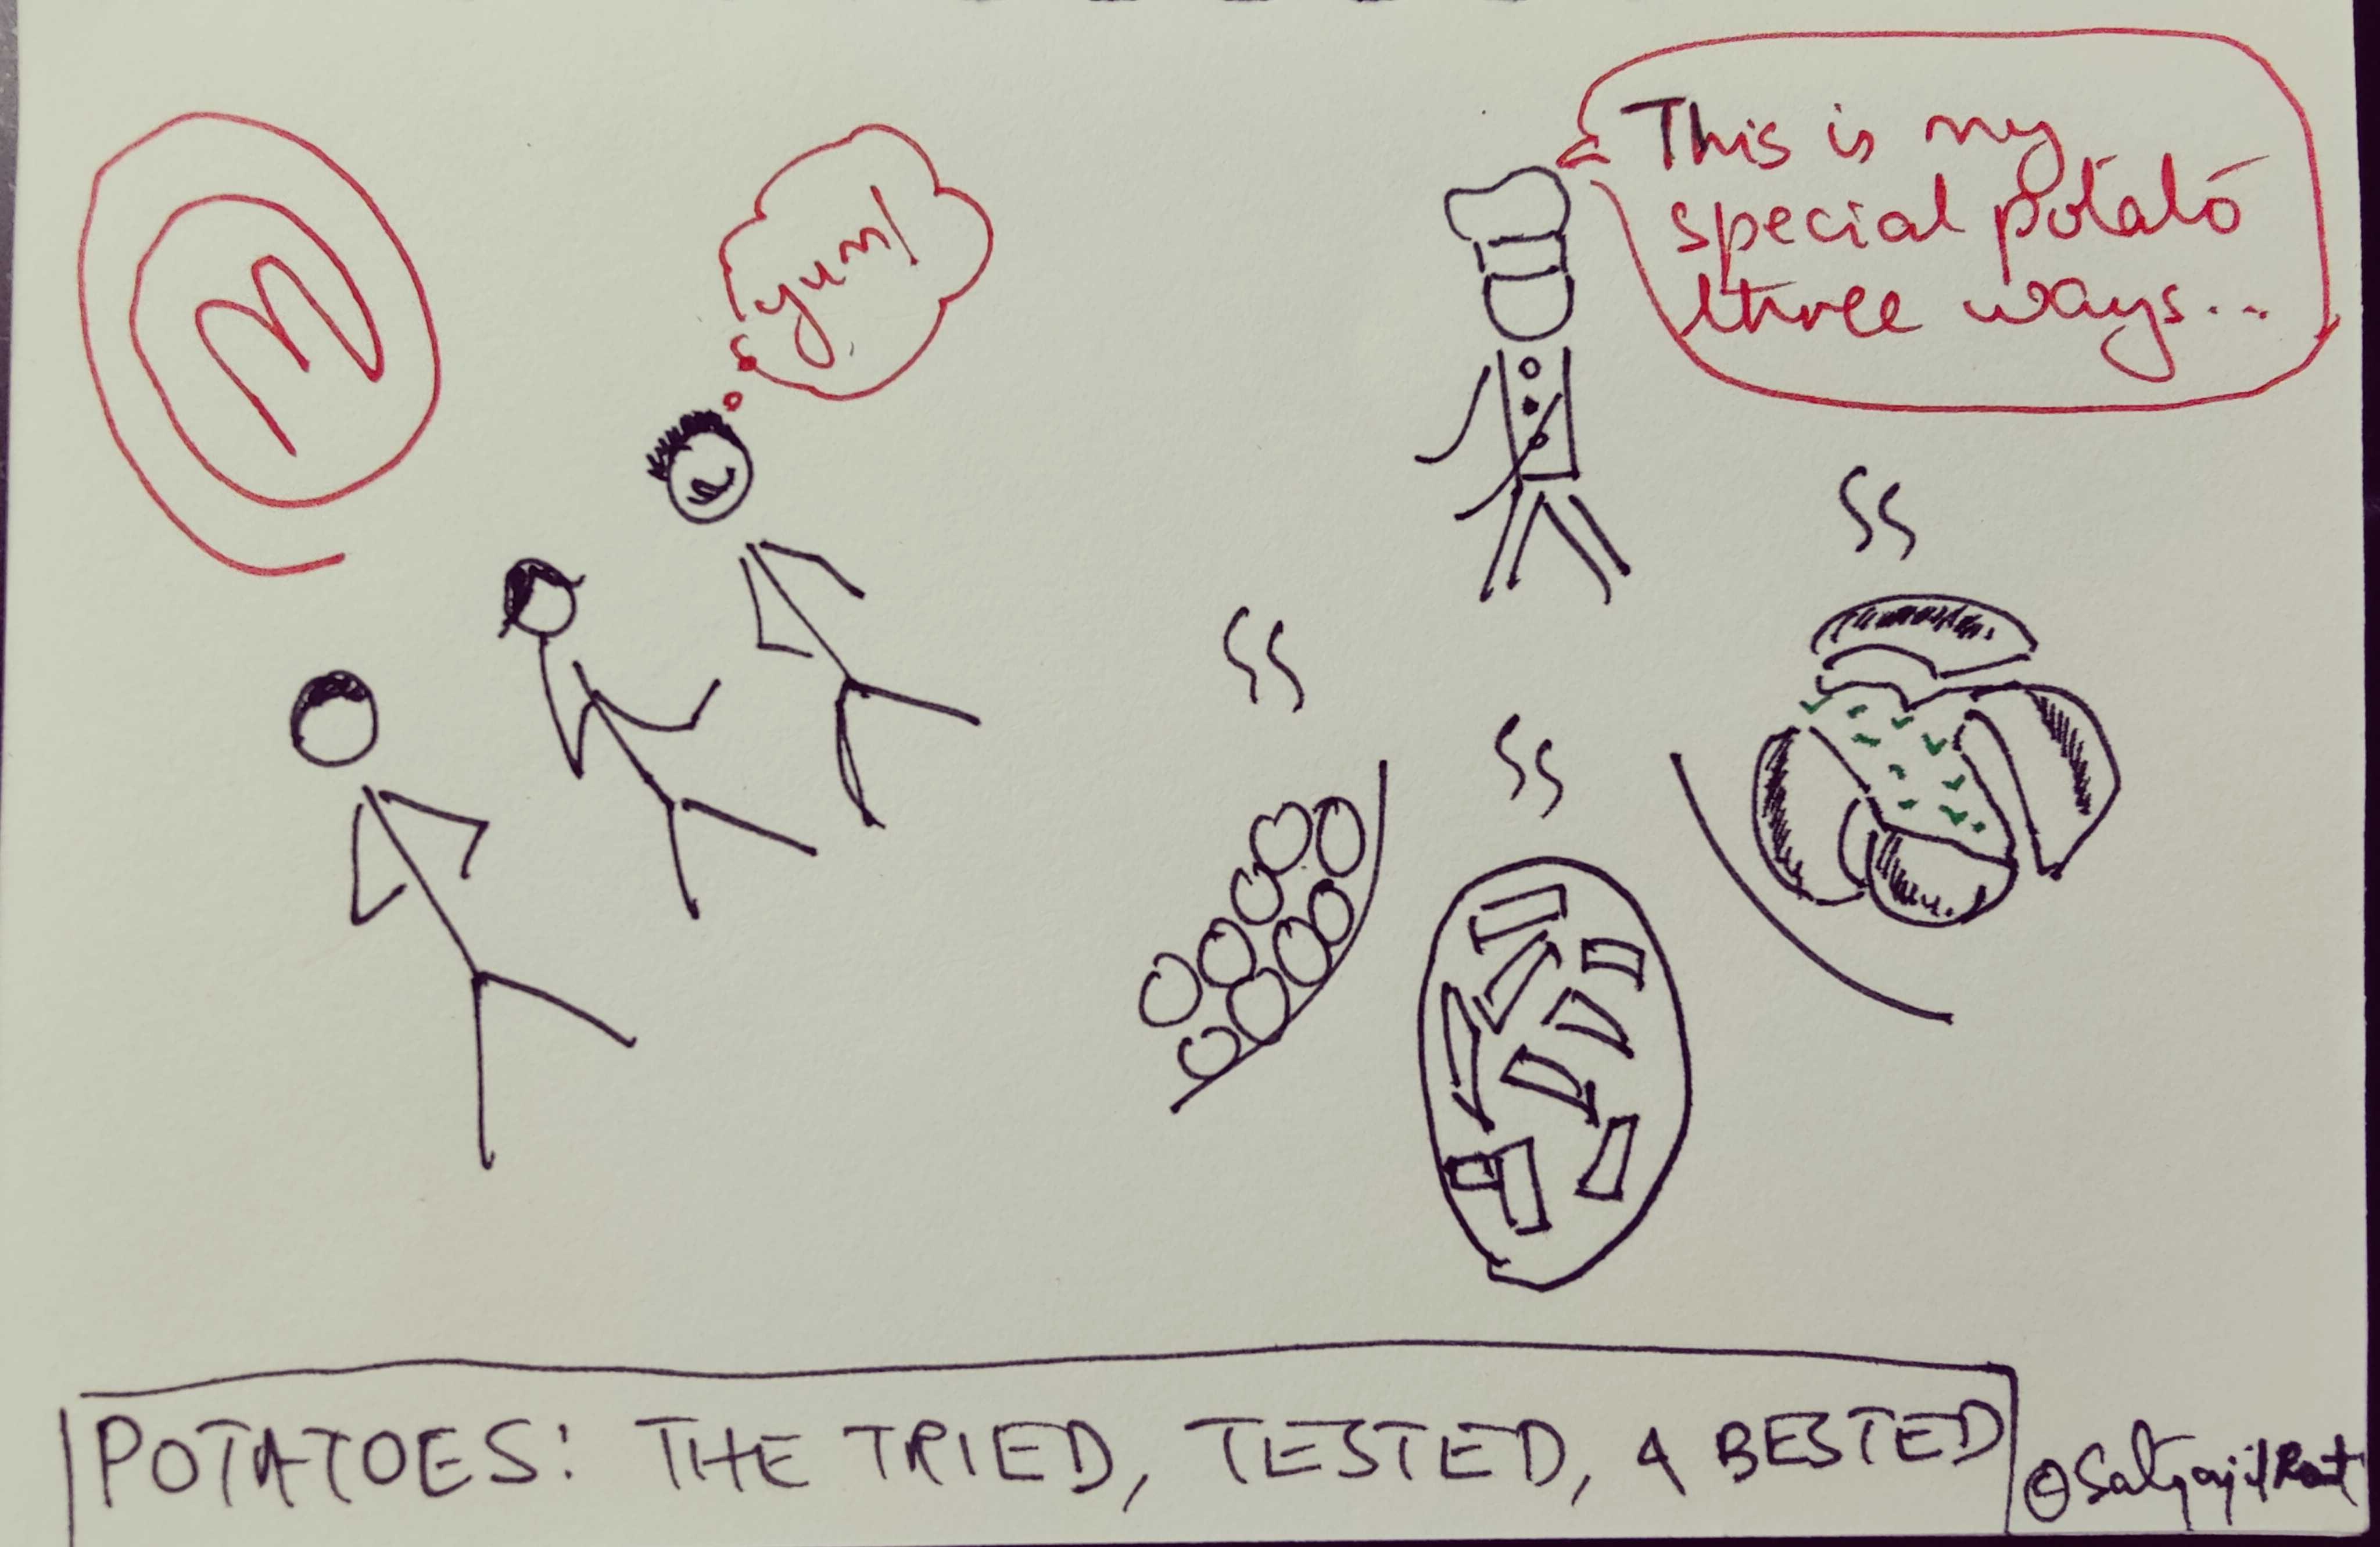 M
yum!
This is my
special potato
three ways...
POTATOES: THE TRIED, TESTED, & BESTED
@SatyajitRout